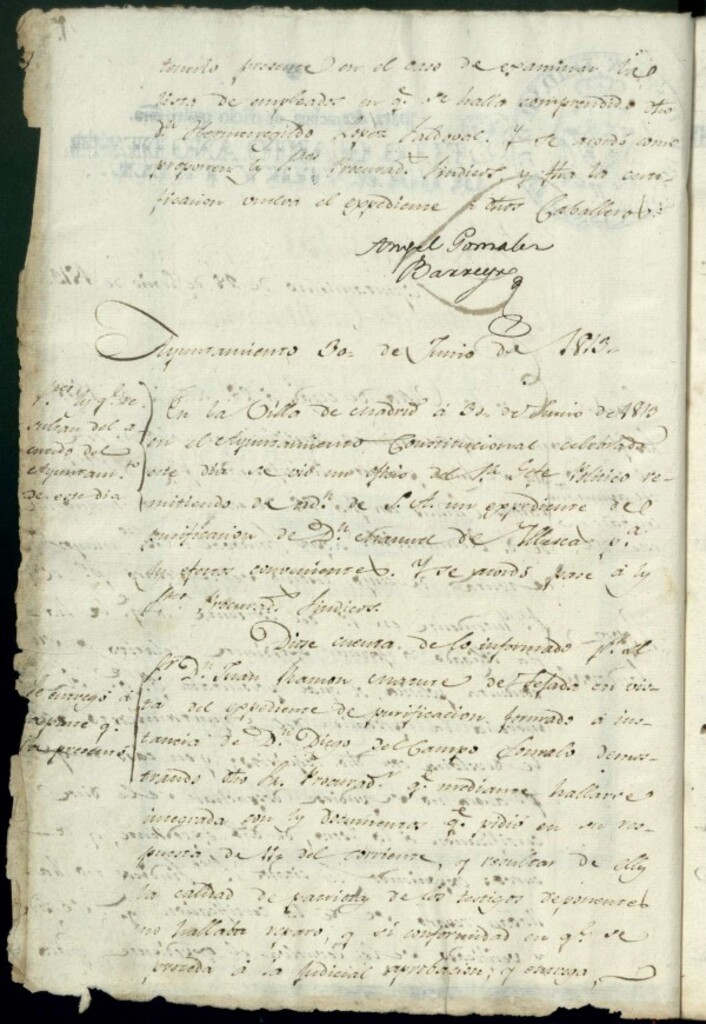 tenerlo presente en el caso de examinar la
lista de empleados en q.e se halla comprendido dho
D.n Hermenegildo Lopez Saldoval. Y se acordó como
proponen ly S.res Procurad.s Sindicos, y fha la certi-
ficacion vuelva el expediente a dhos Caballeros
Angel Gonzalez
Barreyro
Ayuntamiento 30 de Junio de 1813.
q.e re-
sultan del a
cuerdo del
Ayuntam.to
de este dia
En la Villa de Madrid á 30 de Junio de 1813
en el Ayuntamiento Constitucional celebrado
este dia se vió un oficio del S.r Gefe Politico re-
mitiendo de ord.n de S. A. un expediente de
purificacion de D.n Manuel de p.a
ly efectos convenientes. Y se acordó pase á ly
S.res Procurad.s Sindicos.
Diose cuenta de lo informado p.r el
S.r D.n Juan Ramon Matute de Tejado en vis-
ta del expediente de purificacion formado á ins-
tancia de D.n Diego del Campo demos-
trando dho S.r Procurad.r q.e mediante hallarse
integrada con ly documentos q.e pidió en su res-
puesta de del corriente, y resultar de elly
la calidad de patrioty de los testigos deponentes
no hallaba reparo, y sí conformidad en q.e se
proceda á la Judicial aprobacion; y entrega,
se entregó á
la parte q.e
lo presentó